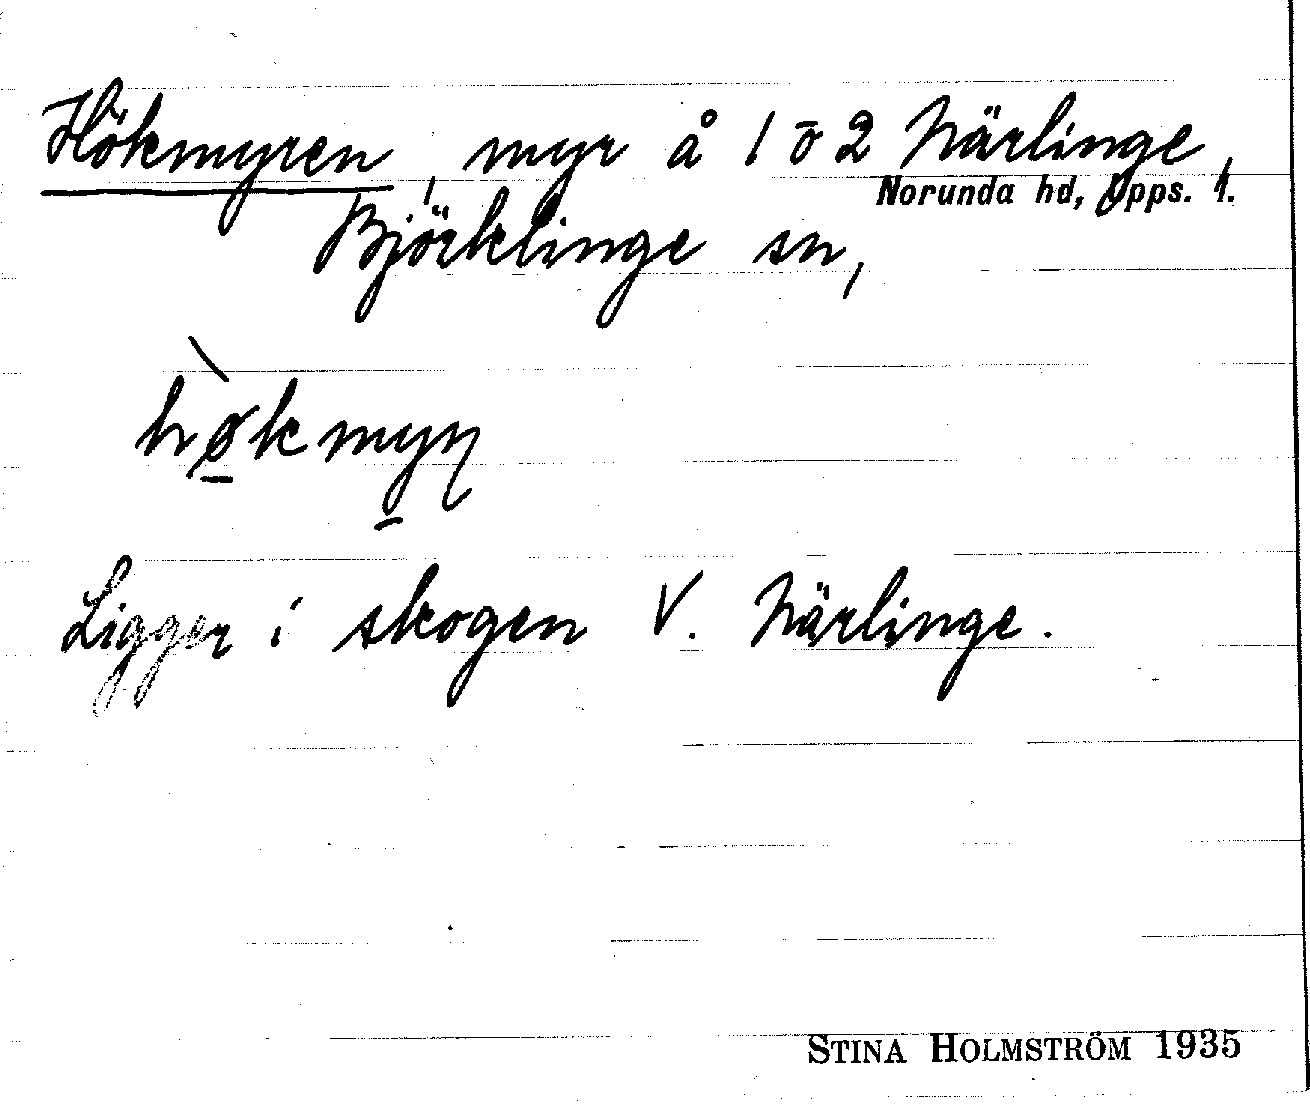 Hökmyren, myr å 1 o 2 Närlinge,
Norunda hd, Upps. l.
Björklinge sn,
hø̀kmyn
Ligger i skogen V. Närlinge.
STINA HOLMSTRÖM 1935